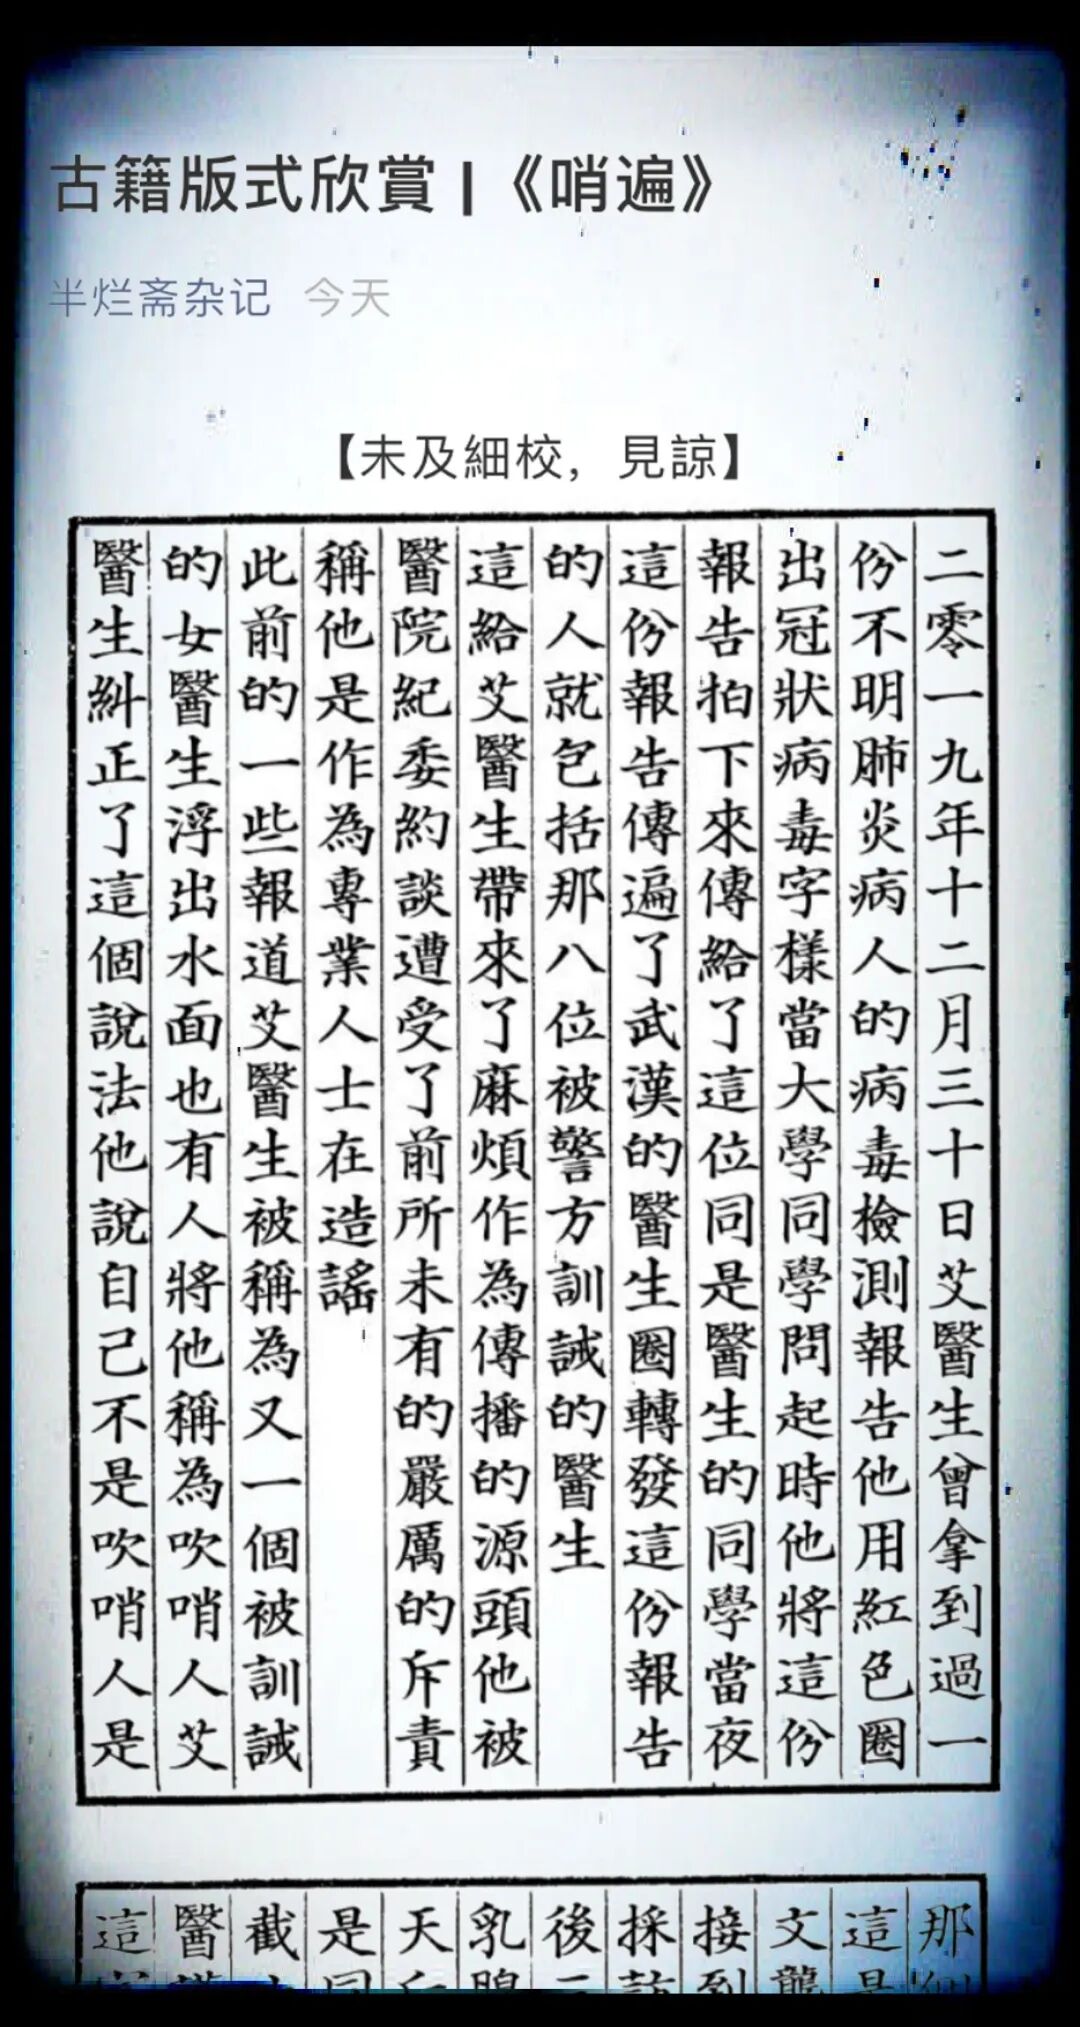 古籍版式欣賞 |《哨遍》
半烂斋杂记 今天
【未及細校，見諒】
二零一九年十二月三十日艾醫生曾拿到過一
份不明肺炎病人的病毒檢測報告他用紅色圈
出冠狀病毒字樣當大學同學問起時他將這份
報告拍下來傳給了這位同是醫生的同學當夜
這份報告傳遍了武漢的醫生圈轉發這份報告
的人就包括那八位被警方訓誡的醫生
這給艾醫生帶來了麻煩作為傳播的源頭他被
醫院紀委約談遭受了前所未有的嚴厲的斥責
稱他是作為專業人士在造謠
此前的一些報道艾醫生被稱為又一個被訓誡
的女醫生浮出水面也有人將他稱為吹哨人艾
醫生糾正了這個說法他說自己不是吹哨人是
那
這是
文龍
接到
採訪
後二
乳腺
天
是同
截
醫
這